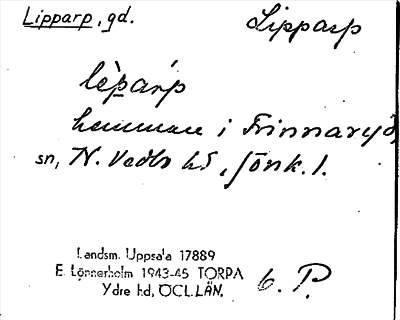 Lipparp, gd. Lipparp
lèp̲árp
hemman i Frinnaryd,
sn, N. Vedbo hd, Jönk. l.
Landsm. Uppsala 17889
E. Lönnerholm 1943-45 TORPA 6. P.
Ydre hd, ÖCL.LÄN.